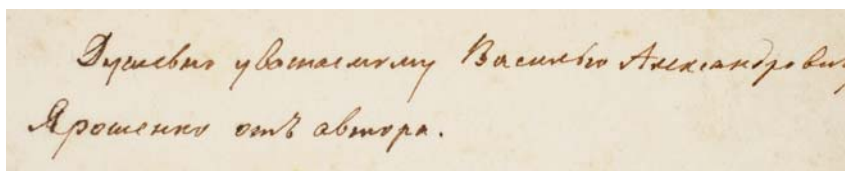 Душевно уважаемому Василью Александрович
Ярошенко отъ автора.